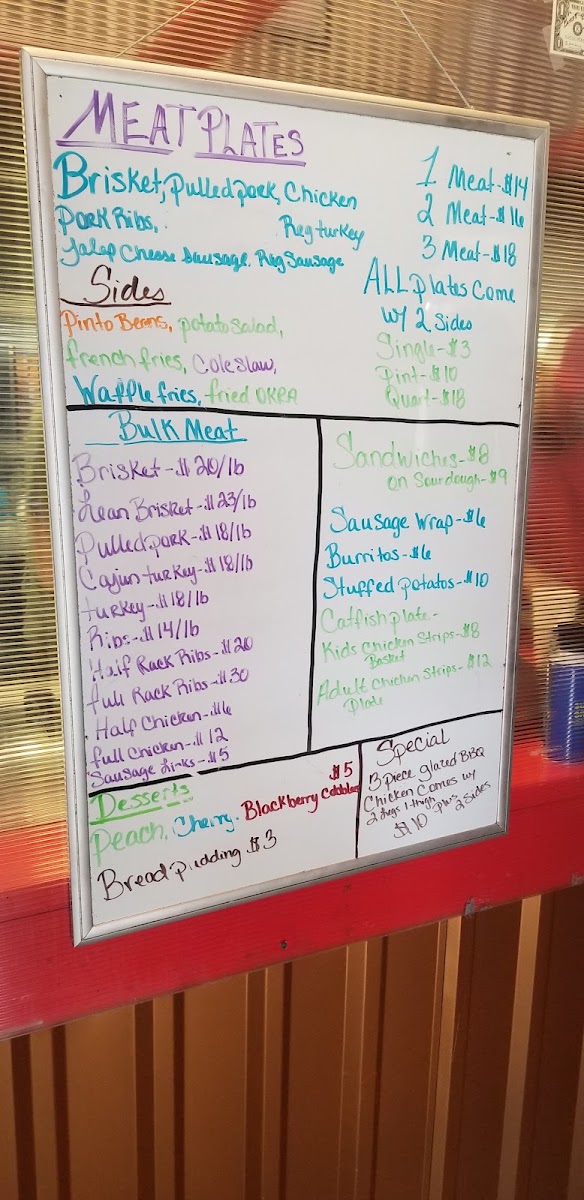 MEAT PLATES
Brisket, Pulled pork, Chicken
Pork Ribs, Reg turkey
Jalep Cheese Sausage, Reg Sausage
1 Meat-$14
2 Meat-$16
3 Meat-$18
ALL plates Come
w/ 2 Sides
Single-$3
Pint-$10
Quart-$18
Sides
Pinto Beans, potato salad,
french fries, Coleslaw,
Waffle fries, fried OKRA
Bulk Meat
Brisket-$20/lb
Lean Brisket-$23/lb
Pulled pork-$18/lb
Cajun turkey-$18/lb
turkey-$18/lb
Ribs-$14/lb
Half Rack Ribs-$20
full Rack Ribs-$30
Half Chicken-$6
full chicken-$12
Sausage Links-$5
Sandwiches-$8
on Sourdough-$9
Sausage Wrap-$6
Burritos-$6
Stuffed potatos-$10
Catfish plate-
Kids Chicken Strips-$8
Basket
Adult Chicken Strips-$12
Plate
Desserts $5
Peach, Cherry, Blackberry Cobbler
Bread pudding $3
Special
3 piece glazed BBQ
Chicken Comes w/
2 legs 1 thigh plus 2 Sides
$10